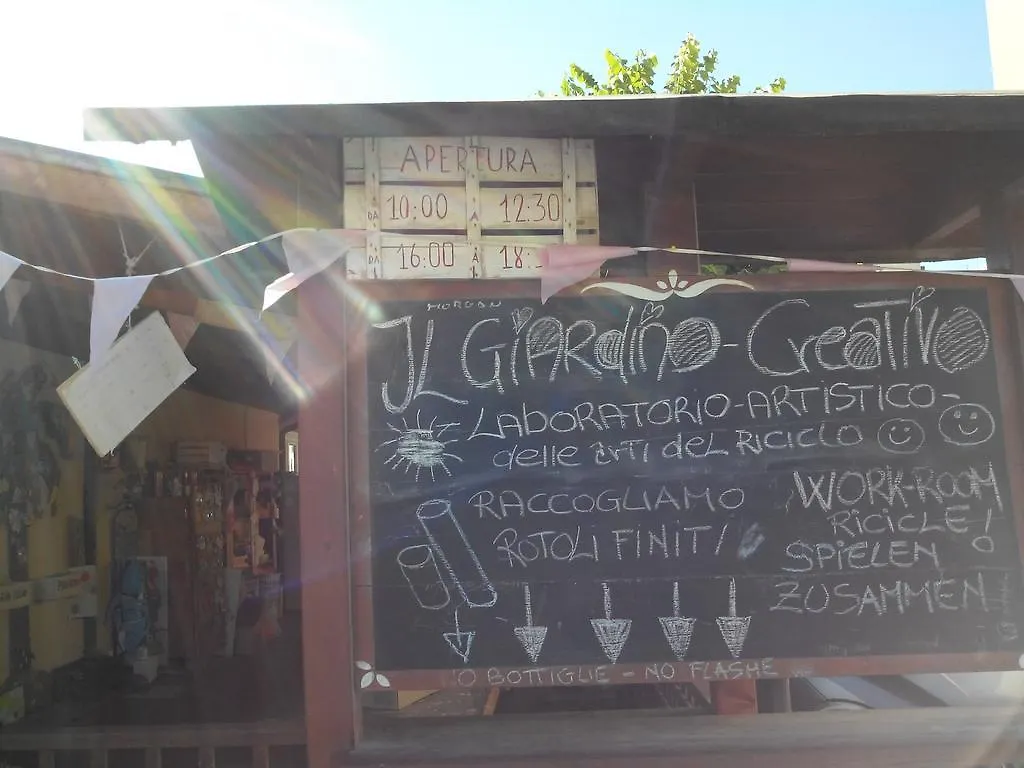 APERTURA
DA 10:00 A 12:30
DA 16:00 A 18:
MORGAN
IL GIARDINO-CREATIVO
LABORATORIO-ARTISTICO-
delle arti del RICICLO
RACCOGLIAMO
ROTOLI FINITI
WORK-ROOM
RICICLE!
SPIELEN
ZUSAMMEN
NO BOTTIGLIE - NO FLASHE